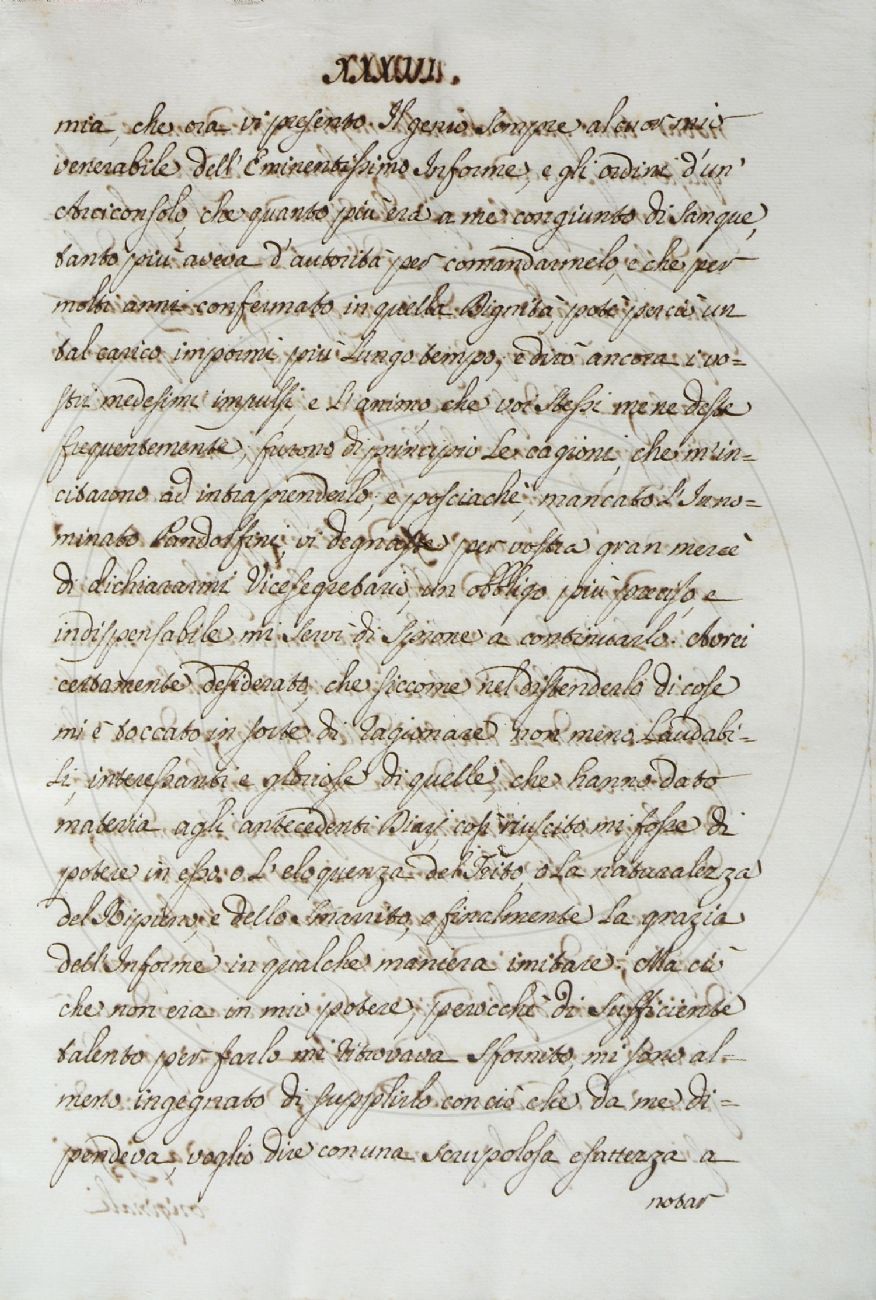 XXXVII.
mia, che ora vi presento. Il genio sempre al cuor mio
venerabile dell'Eminentissimo Informe, e gli ordini d'un'
Arciconsolo, che quanto più era a me congiunto di sangue,
tanto più aveva d'autorità per comandarmelo, e che per
molti anni confermato in quella Dignità potè perciò un
tal carico impormi più lungo tempo, e dirò ancora i vo=
stri medesimi impulsi, e l'animo, che voi stessi me ne deste
frequentemente, furono di principio le cagioni, che m'in=
citarono ad intraprenderlo; e posciachè, mancato l'Inno=
minato Pandolfini, vi degnaste per vostra gran mercè
di dichiararmi Vicesegretario, un obbligo più preciso, e
indispensabile mi servì di sprone a continuarlo. Averei
certamente desiderato, che siccome nel distenderlo di cose
mi è toccato in sorte di ragionare non meno laudabi=
li, interessanti e gloriose di quelle, che hanno dato
materia agli antecedenti Diarj, così riuscito mi fosse di
potere in esso o l'eloquenza del Trito, o la naturalezza
del Ripieno, e dello Smarrito, o finalmente la grazia
dell'Informe in qualche maniera imitare. Ma ciò
che non era in mio potere, perocchè di sufficiente
talento per farlo mi ritrovava sfornito, mi sono al=
meno ingegnato di supplirlo con ciò che da me di=
pendeva, voglio dire con una scrupolosa esattezza a
notar